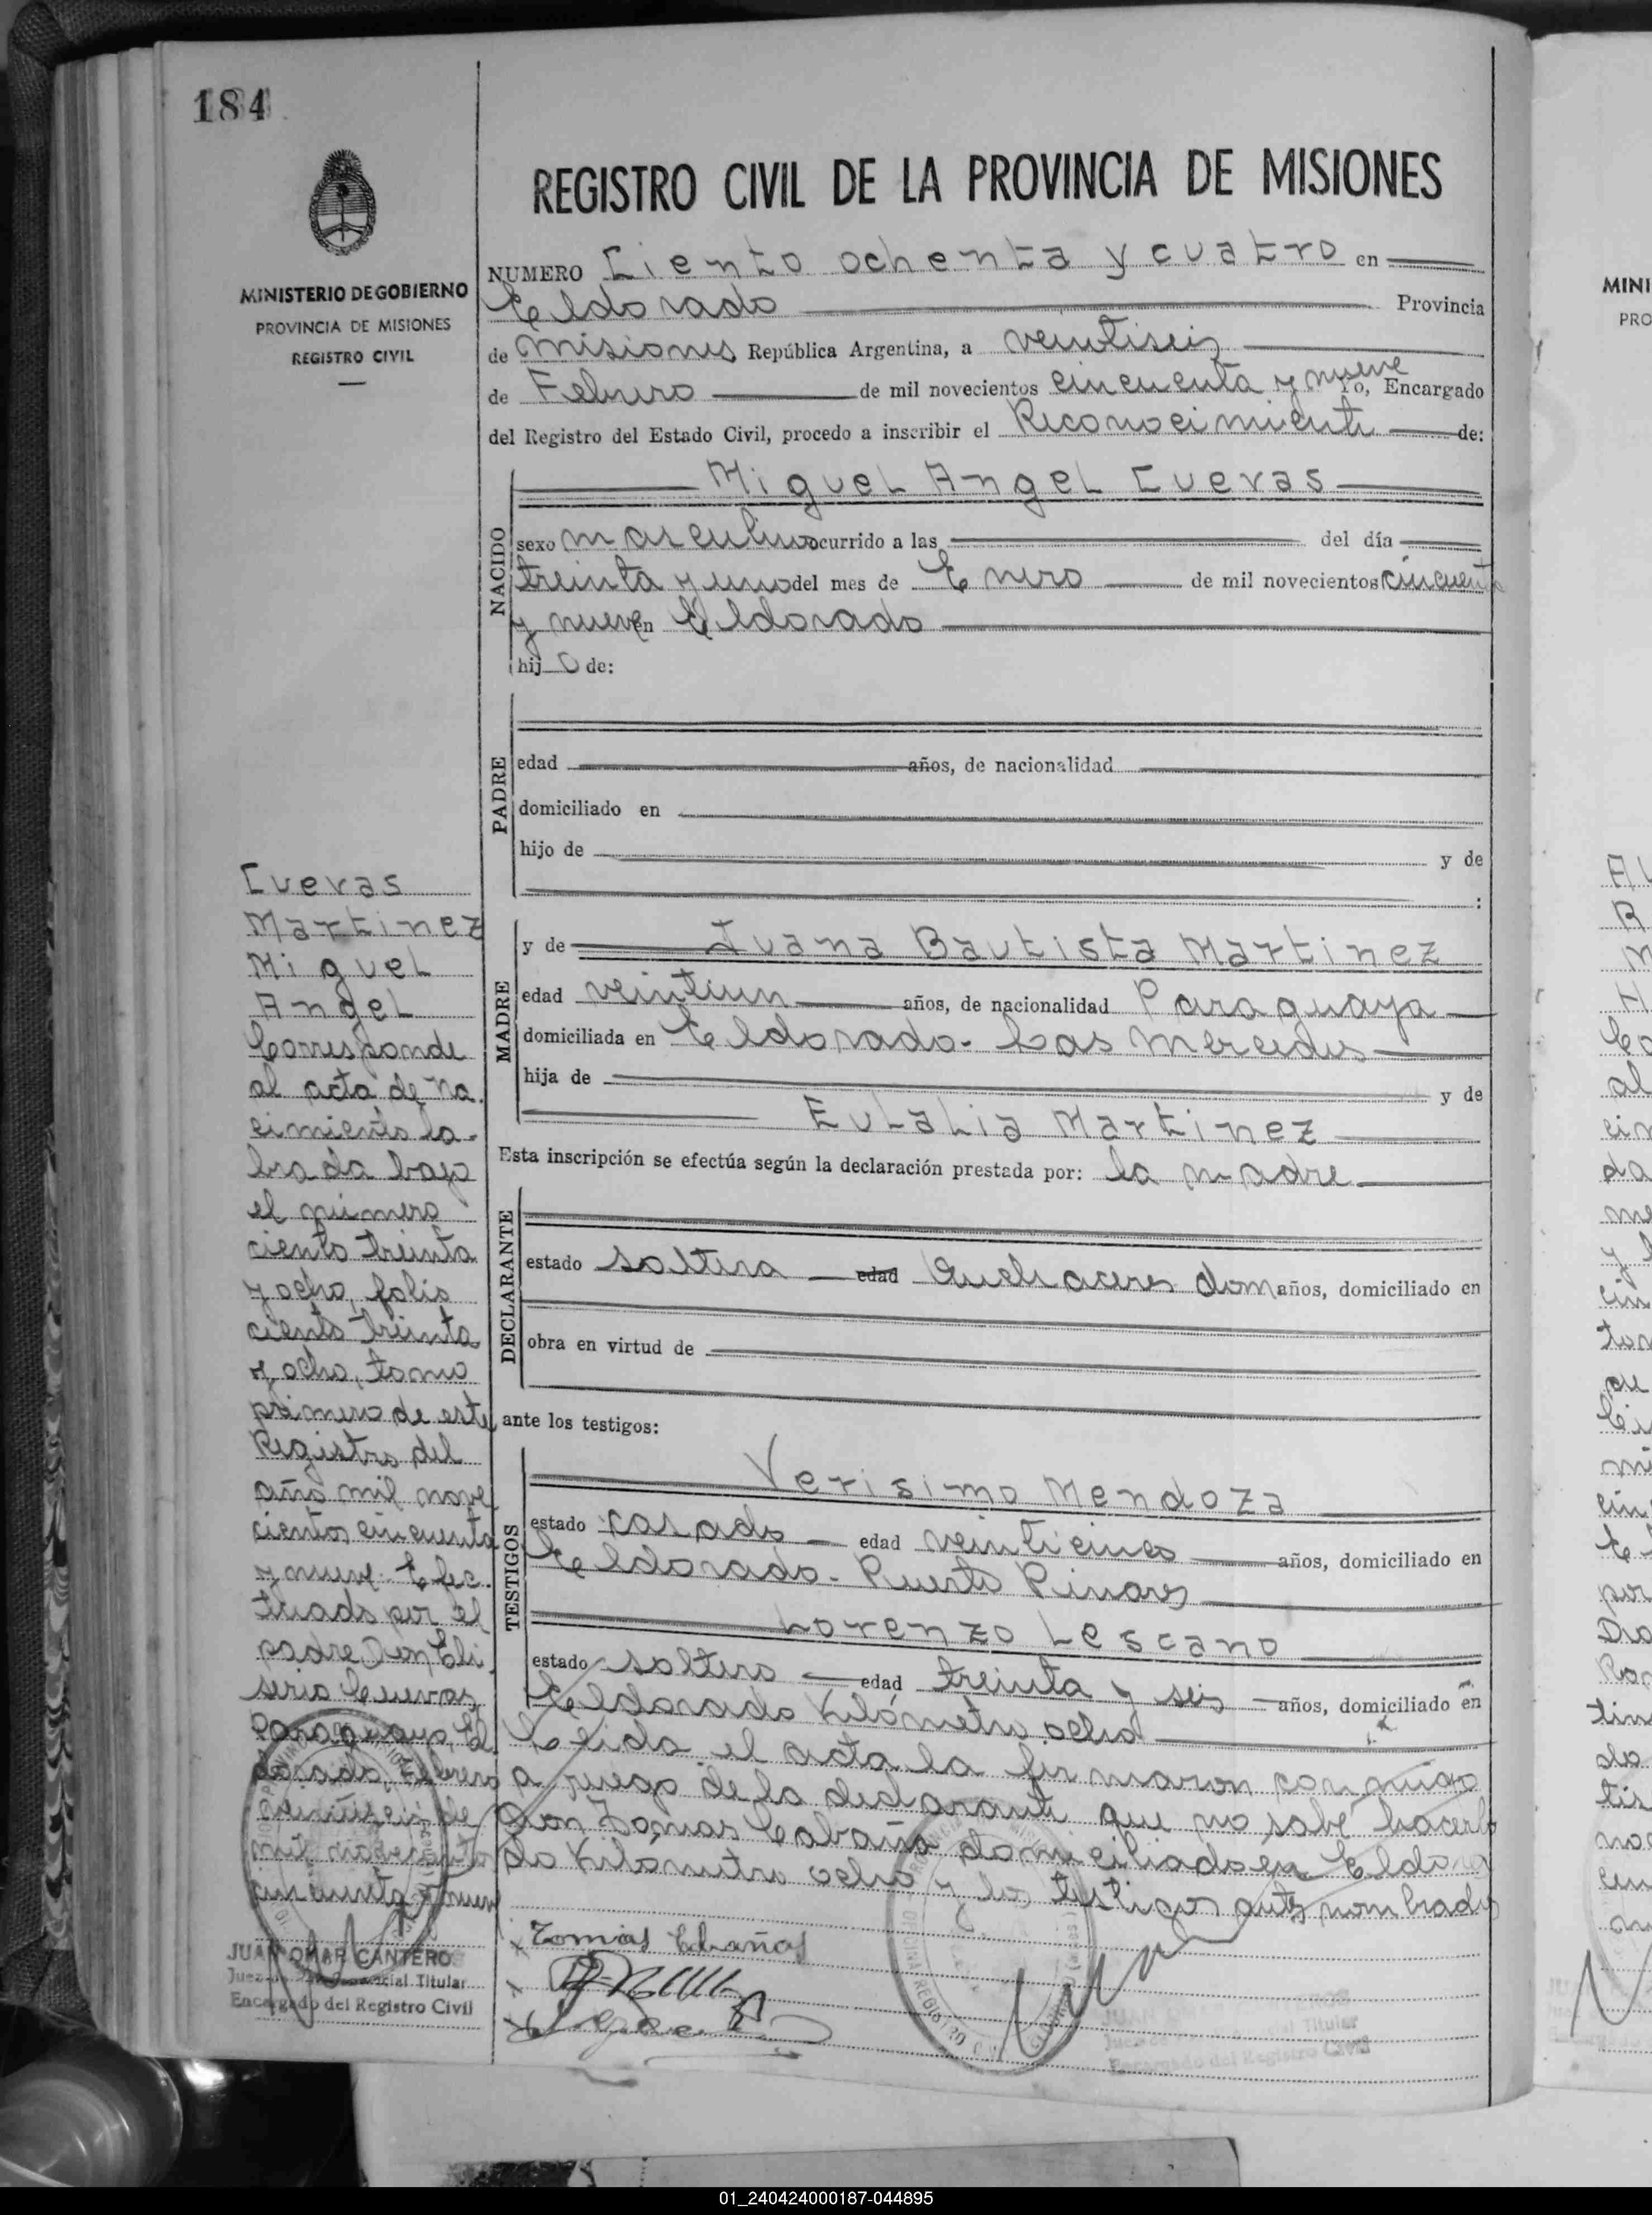 184
REGISTRO CIVIL DE LA PROVINCIA DE MISIONES
MINISTERIO DE GOBIERNO
PROVINCIA DE MISIONES
REGISTRO CIVIL
NUMERO Ciento ochenta y cuatro en
Eldorado Provincia
de Misiones República Argentina, a veintiseis
de Febrero de mil novecientos cincuenta y nueve Yo, Encargado
del Registro del Estado Civil, procedo a inscribir el Reconocimiento de:
NACIDO
Miguel Angel Cuevas
sexo masculino ocurrido a las del día
treinta y uno del mes de Enero de mil novecientos cincuenta
y nueve en Eldorado
hijo de:
PADRE
edad años, de nacionalidad
domiciliado en
hijo de y de
:
MADRE
y de Juana Bautista Martinez
edad veintiun años, de nacionalidad Paraguaya
domiciliada en Eldorado- Las Mercedes
hija de y de
Eulalia Martinez
Esta inscripción se efectúa según la declaración prestada por: la madre
DECLARANTE
estado soltera edad Quehaceres dom años, domiciliado en
obra en virtud de
ante los testigos:
TESTIGOS
Verisimo Mendoza
estado casado edad veinticinco años, domiciliado en
Eldorado- Puerto Pinares
Lorenzo Lescano
estado soltero edad treinta y seis años, domiciliado en
Eldorado Kilómetro ocho
Leida el acta la firmaron conmigo
a ruego de la declarante que no sabe hacerlo
Don Tomas Cabaña domiciliado en Eldora
do Kilómetro ocho y los testigos antes nombrados
Tomás Cabañas
Cuevas
Martinez
Miguel
Angel
Corresponde
al acta de na.
cimiento la-
brada bajo
el número
ciento treinta
y ocho, folio
ciento treinta
y ocho, tomo
primero de este
Registro del
año mil nove
cientos cincuenta
y nueve. Efec.
tuado por el
padre Don Eli
serio Cuevas
Paraguayo, El
dorado, Febrero
veintiseis de
mil novecientos
cincuenta y nueve
JUAN OMAR CANTEROS
Juez de Paz Titular
Encargado del Registro Civil
JUAN OMAR CANTEROS
Titular
Encargado del Registro Civil
MINI
PRO
01_240424000187-044895